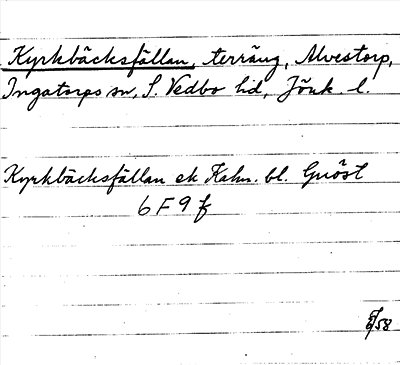 Kyrkbäcksfällan, terräng, Alvestorp,
Ingatorps sn, S. Vedbo hd, Jönk. l.
Kyrkbäcksfällan ek Kahn. bl. Gnöst
6 F 9 f
/58